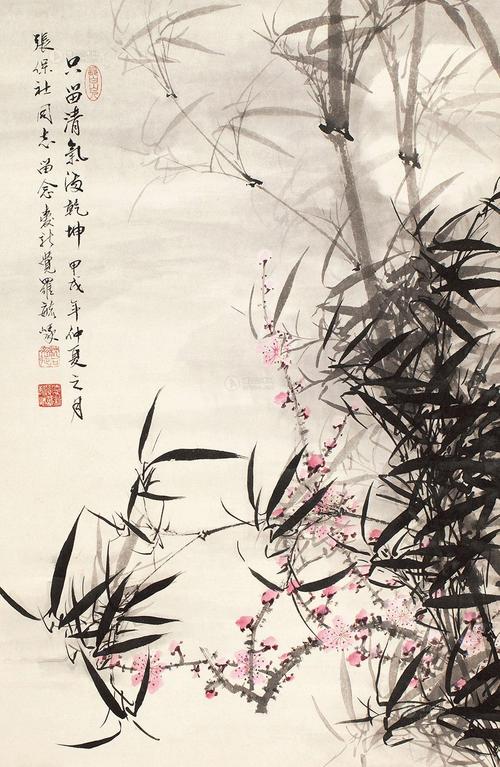 只留清氣滿乾坤 甲戌年仲夏之月
張保社同志留念 愛新覺羅毓峨